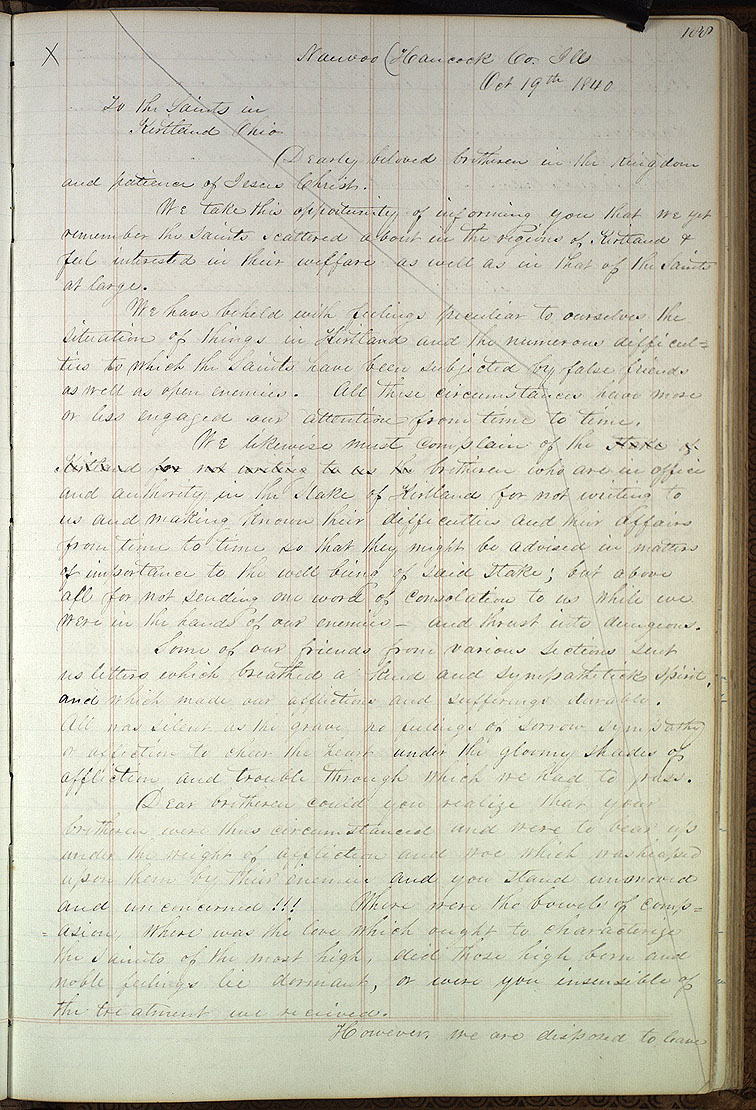 X
Nauvoo (Hancock Co. Ills
Oct 19th 1840
To the Saints in
Kirtland Ohio
Dearly beloved bretheren in the Kingdom
and patience of Jesus Christ.
We take this oppotunity of informing you that we yet
remember the saints scattered about in the regions of Kirtland &
feel interested in their welfare as well as in that of the Saints
at large.
We have beheld with feelings peculiar to ourselves the
situation of things in Kirtland and the numerous difficul=
ties to which the Saints have been subjected by false friends
as well as open enemies. All these circumstances have more
or less engaged our attention from time to time.
We likewise must complain of the Stake of
Kirtland for not writing to us in bretheren who are in office
and authority in the Stake of Kirtland for not writing to
us and making known their difficulties and their affairs
from time to time so that they might be advised in matters
of importance to the well being of said Stake; but above
all for not sending one word of consolation to us while we
were in the hands of our enemies - and thrust into dungeons.
Some of our friends from various sections sent
us letters which breathed a kind and sympathetick spirit,
and which made our afflictions and sufferings durable.
All was silent as the grave, no feelings of sorrow sympathy
or affection to cheer the heart under the gloomy shades of
affliction and trouble through which we had to pass.
Dear bretheren could you realize that your
bretheren were thus circumstanced and were to bear up
under the weight of affliction and woe which was heaped
upon them by their enemies and you stand unmoved
and unconcerned!!! Where were the bowels of comp=
=asion, where was the love which ought to characterize
the Saints of the most high, did those high born and
noble feelings lie dormant, or were you insensible of
the treatment we received.
However, we are disposed to leave